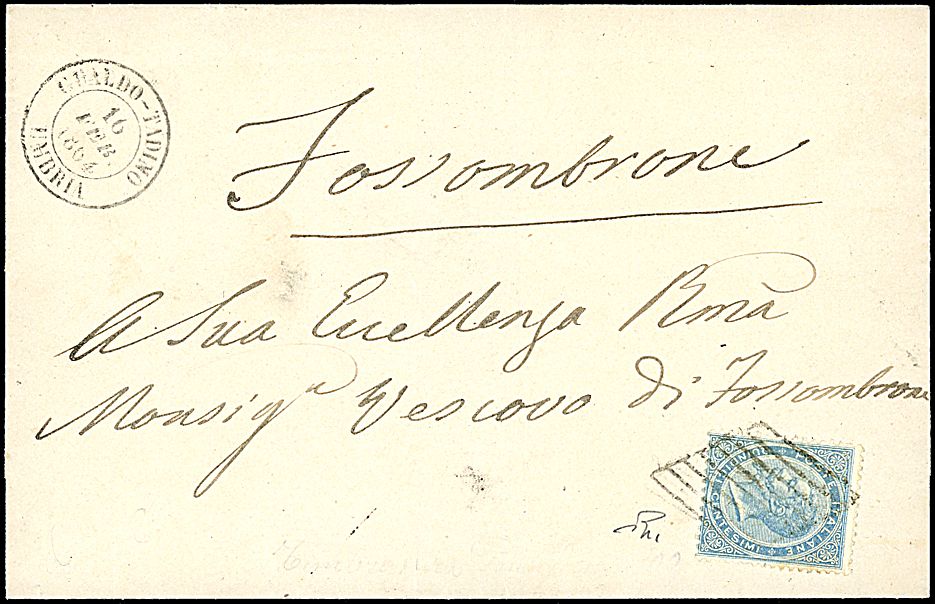 GUALDO-TADINO
16
FEB.
1864
UMBRIA
Fossombrone
A Sua Eccellenza Rma
Monsigr Vescovo di Fossombrone
POSTE ITALIANE
QUINDICI CENTESIMI